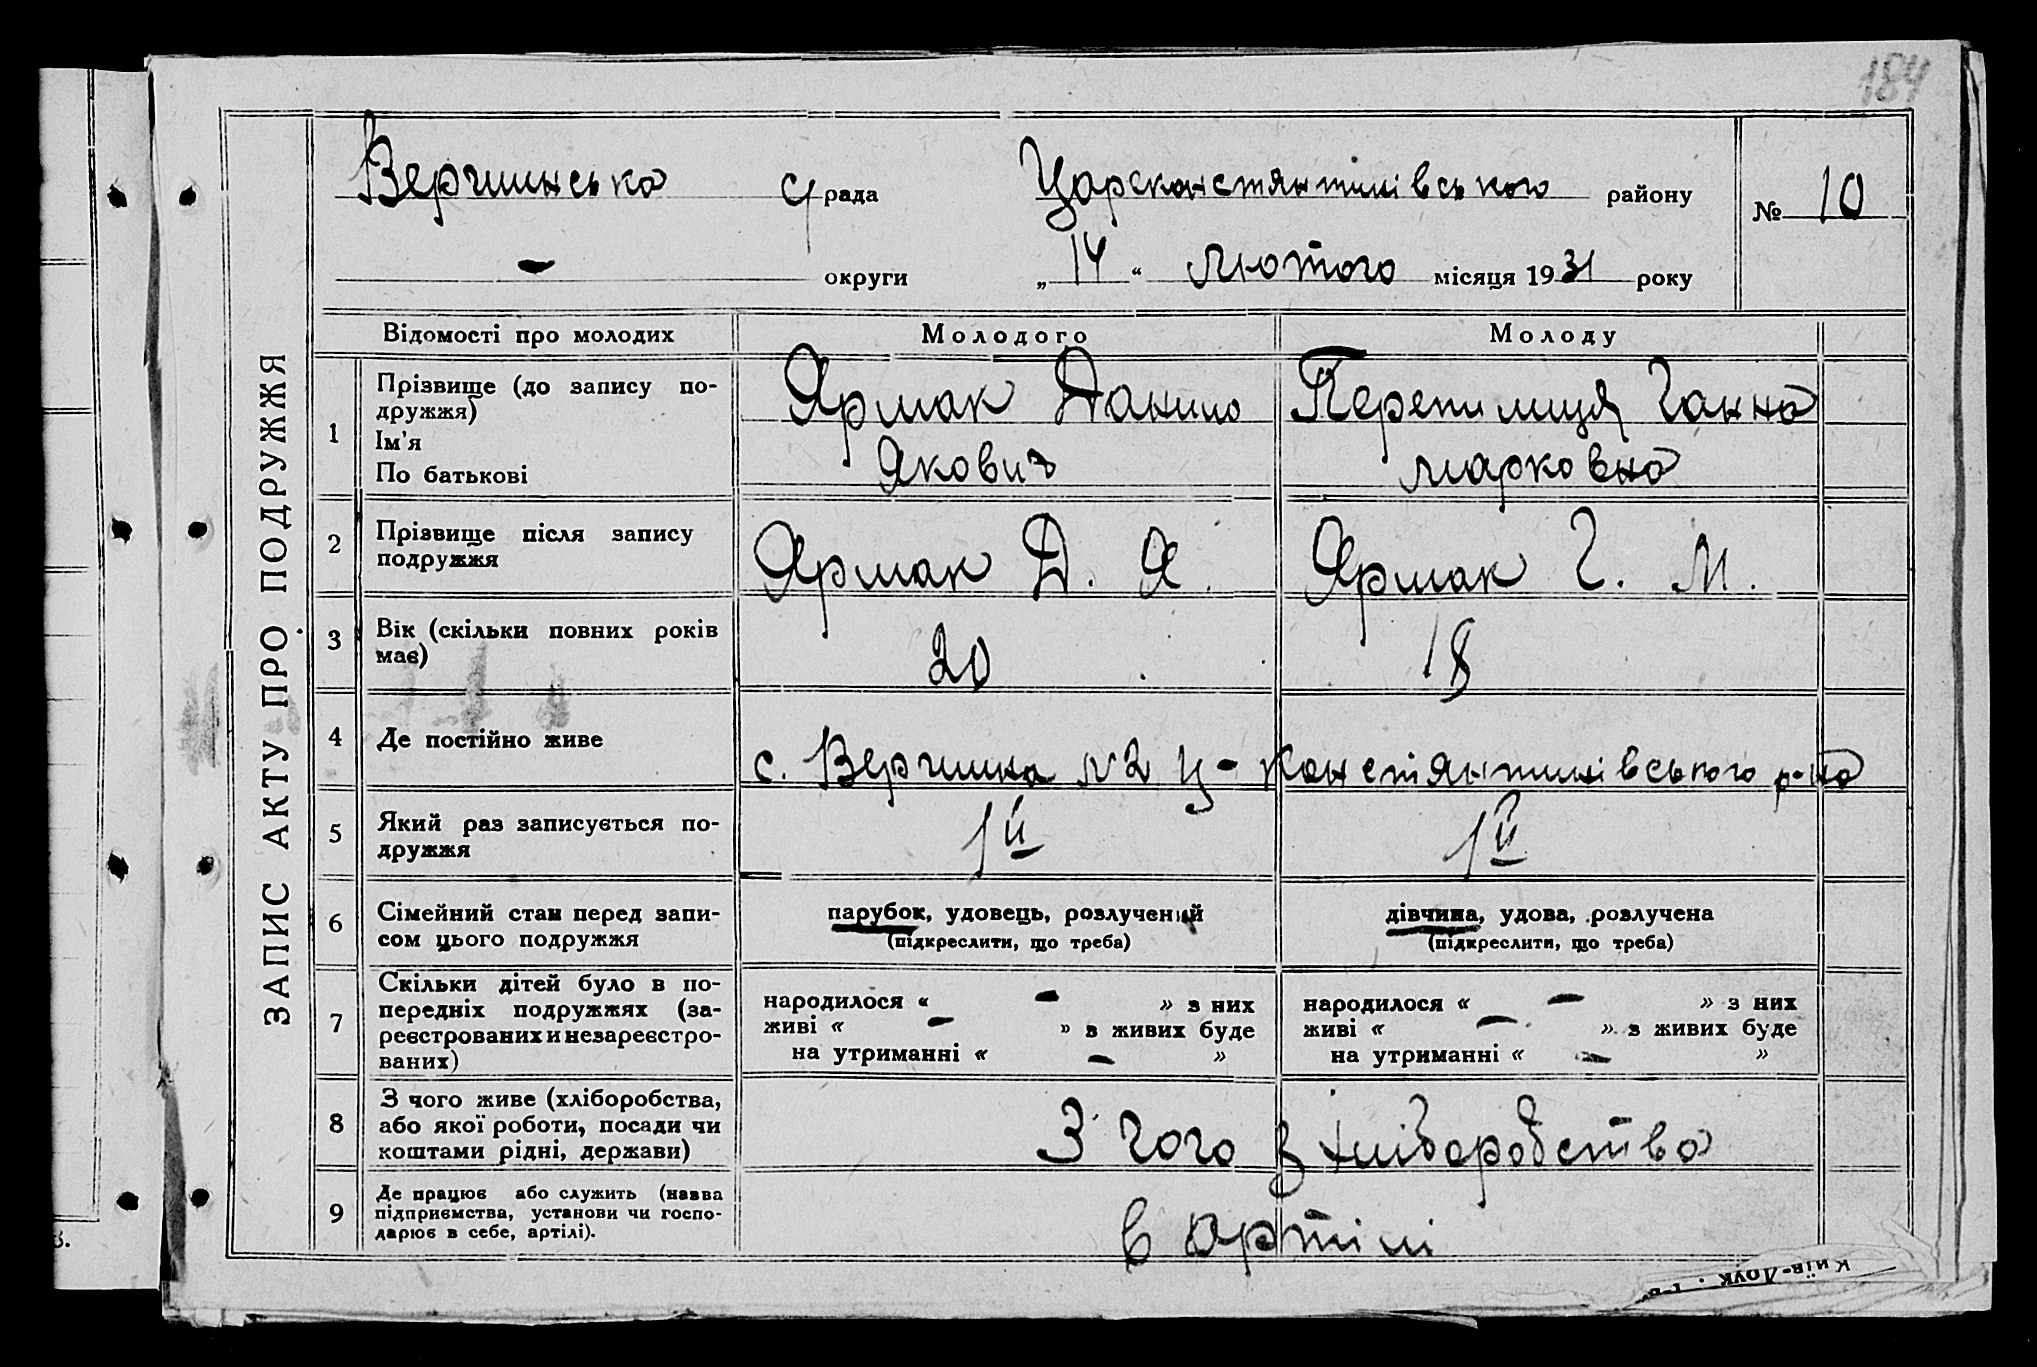 184
Вершинська с/рада Царсконстянтинівського району № 10
— округи „14“ лютого місяця 1931 року
ЗАПИС АКТУ ПРО ПОДРУЖЖЯ
Відомості про молодих Молодого Молоду
1 Прізвище (до запису по-
дружжя)
Ім'я
По батькові
Ярмак Данило
Якович
Перепилиця Ганна
Марковна
2 Прізвище після запису
подружжя
Ярмак Д. Я.
Ярмак Г. М.
3 Вік (скільки повних років
має)
20
18
4 Де постійно живе
с. Вершина №2 Ц-Констянтинівського р-на
5 Який раз записується по-
дружжя
1й
1й
6 Сімейний стан перед запи-
сом цього подружжя
парубок, удовець, розлучений
(підкреслити, що треба)
дівчина, удова, розлучена
(підкреслити, що треба)
7 Скільки дітей було в по-
передніх подружжях (за-
реєстрованих и незареєстро-
ваних)
народилося « — » з них
живі « — » з живих буде
на утриманні « — »
народилося « — » з них
живі « — » з живих буде
на утриманні « — »
8 З чого живе (хліборобства,
або якої роботи, посади чи
коштами рідні, держави)
З чого з хліборобства
9 Де працює або служить (назва
підприємства, установи чи госпо-
дарює в себе, артілі).
в артілі
Київ-Друк